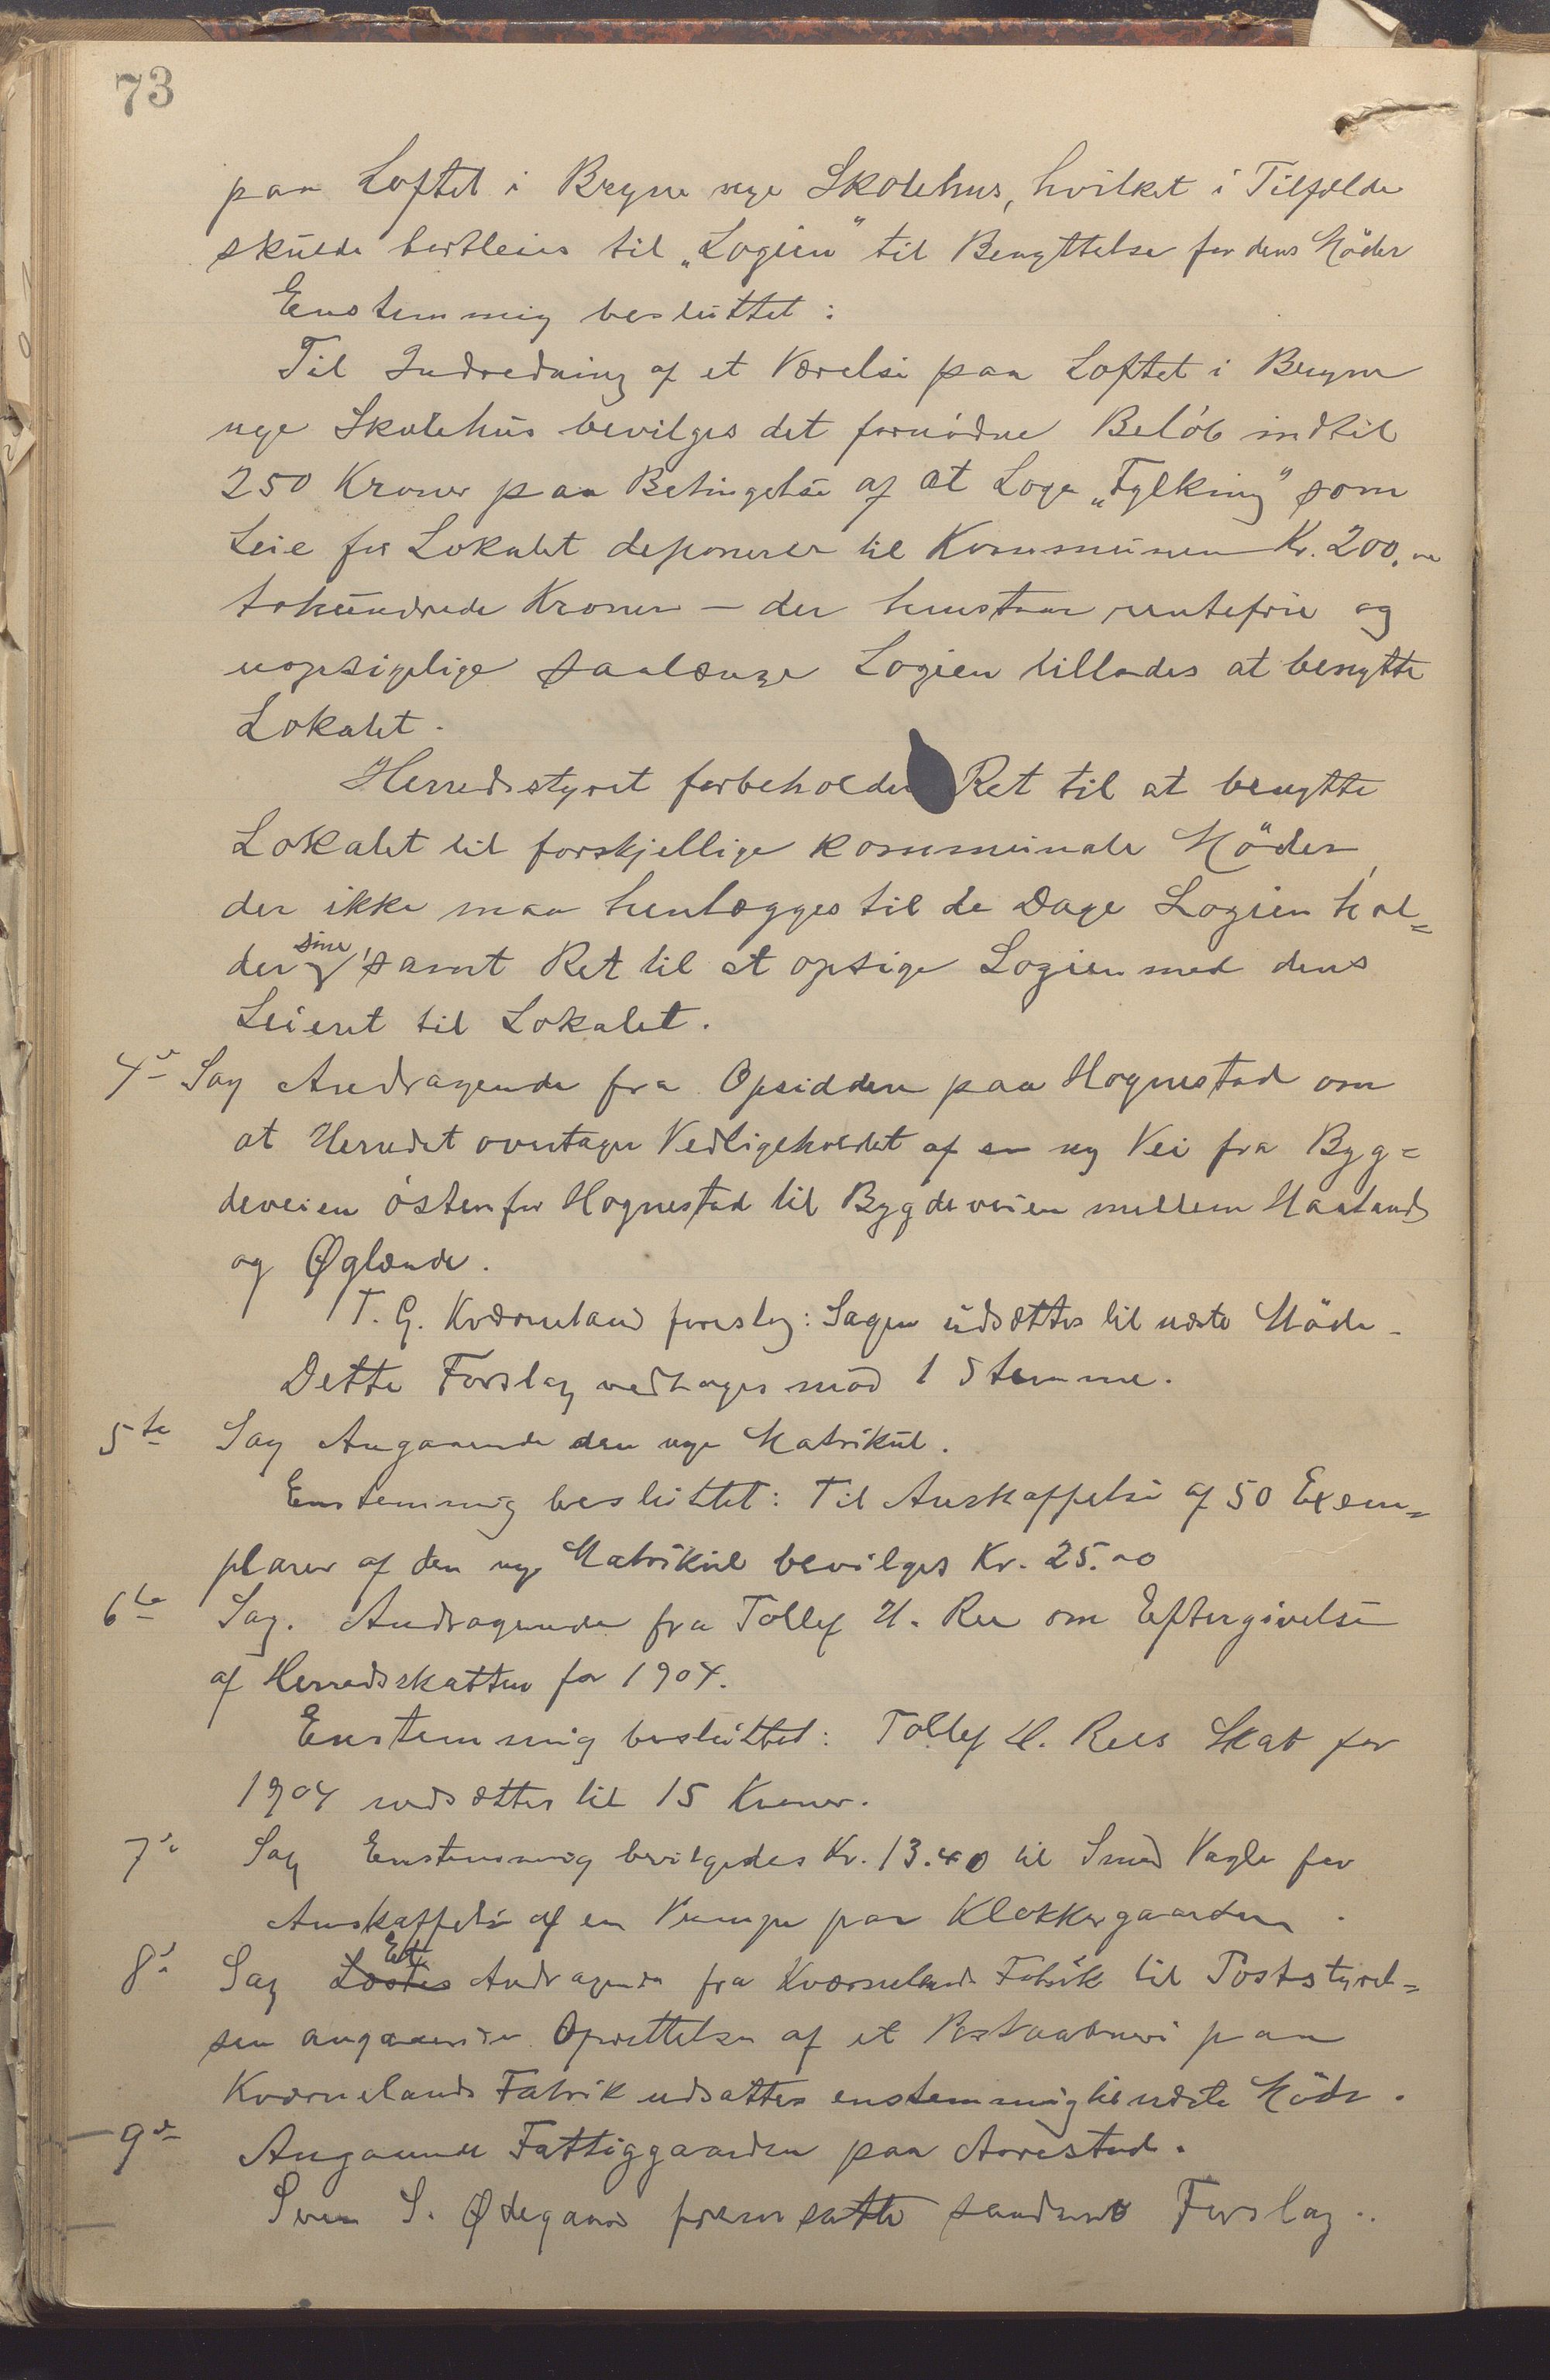 73
paa Loftet i Bryne nye Skolehus, hvilket i Tilfælde
skulde bortleies til „Logien" til Benyttelse for dens Möder
Enstemmig besluttet:
Til Indredning af et Værelse paa Loftet i Bryne
nye Skolehus bevilges det fornødne Beløb indtil
250 Kroner paa Betingelse af at Loge „Fylking" som
Leie for Lokalet deponerer til Kommunen Kr. 200,00
tohundrede Kroner – der henstaar rentefrie og
uopsigelige saalænge Logien tillades at benytte
Lokalet.
Herredsstyret forbeholder Ret til at benytte
Lokalet til forskjellige kommunale Möder,
der ikke maa henlægges til de Dage Logien hol=
der sine, samt Ret til at opsige Logien med dens
Leieret til Lokalet.
4de Sag Andragende fra Opsidderne paa Hognestad om
at Herredet overtager Vedligeholdet af en ny Vei fra Byg=
deveien østenfor Hognestad til Bygdeveien mellem Haaland
og Øglænde.
T. G. Kværneland foreslog: Sagen udsættes til næste Möde.
Dette Forslag vedtoges mod 1 Stemme.
5te Sag Angaaende den nye Matrikul.
Enstemmig besluttet: Til Anskaffelse af 50 Exem=
plarer af den nye Matrikul bevilges Kr. 25.00
6te Sag. Andragende fra Tollef H. Ree om Eftergivelse
af Herredsskatten for 1904.
Enstemmig besluttet: Tollef H. Rees Skat for
1904 nedsættes til 15 Kroner.
7de Sag Enstemmig bevilgedes Kr. 13.40 til Smed Vagle for
Anskaffelse af en Pumpe paa Klokkergaarden.
8de Sag Et Andragende fra Kværnelands Fabrik til Poststyrel=
sen angaaende Oprettelse af et Postaabneri paa
Kværnelands Fabrik udsattes enstemmig til næste Möde.
9de Angaaende Fattiggaarden paa Aarestad.
Sven S. Ødegaard fremsatte saadant Forslag..